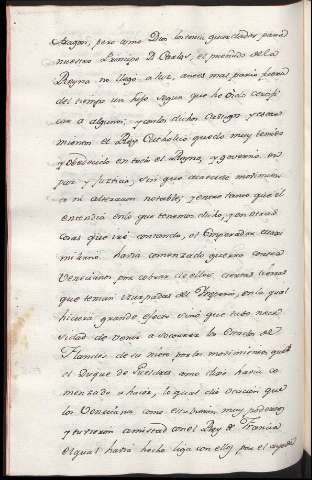 Aragon, pero como Dios los tenia guardados para
nuestro Principe D. Carlos, el preñado de la
Reyna no llego a luz, antes mas pario fuera
del tiempo un hijo segun que he oido certifi
car a algunos; y con los dichos castigos, y
mientos el Rey Catholico quedo muy temido
y obedecido en todo el Reyno, y governó en
paz y Justicia, sin que huviesse movimien
to ni alteracion notable; y entre tanto que él
entendia en lo que tenemos dicho, y en otras
cosas que iré contando, el Emperador Maxi
miliano havia comenzado guerra contra
Venecianos por cobrar de ellos ciertas tierras
que tenian usurpadas del Imperio, en la qual
hiciera grande efecto sino que tubo nece
sidad de venir a socorrer los Estados de
Flandes de su nieto por los movimientos que
el Duque de Gueldres como dicho havia co
menzado a hacer, lo qual dió ocasion que
los Venecianos como estubieron muy poderosos
y tuvieron amistad con el Rey de Francia
el qual havia hecho liga con ellos, por el